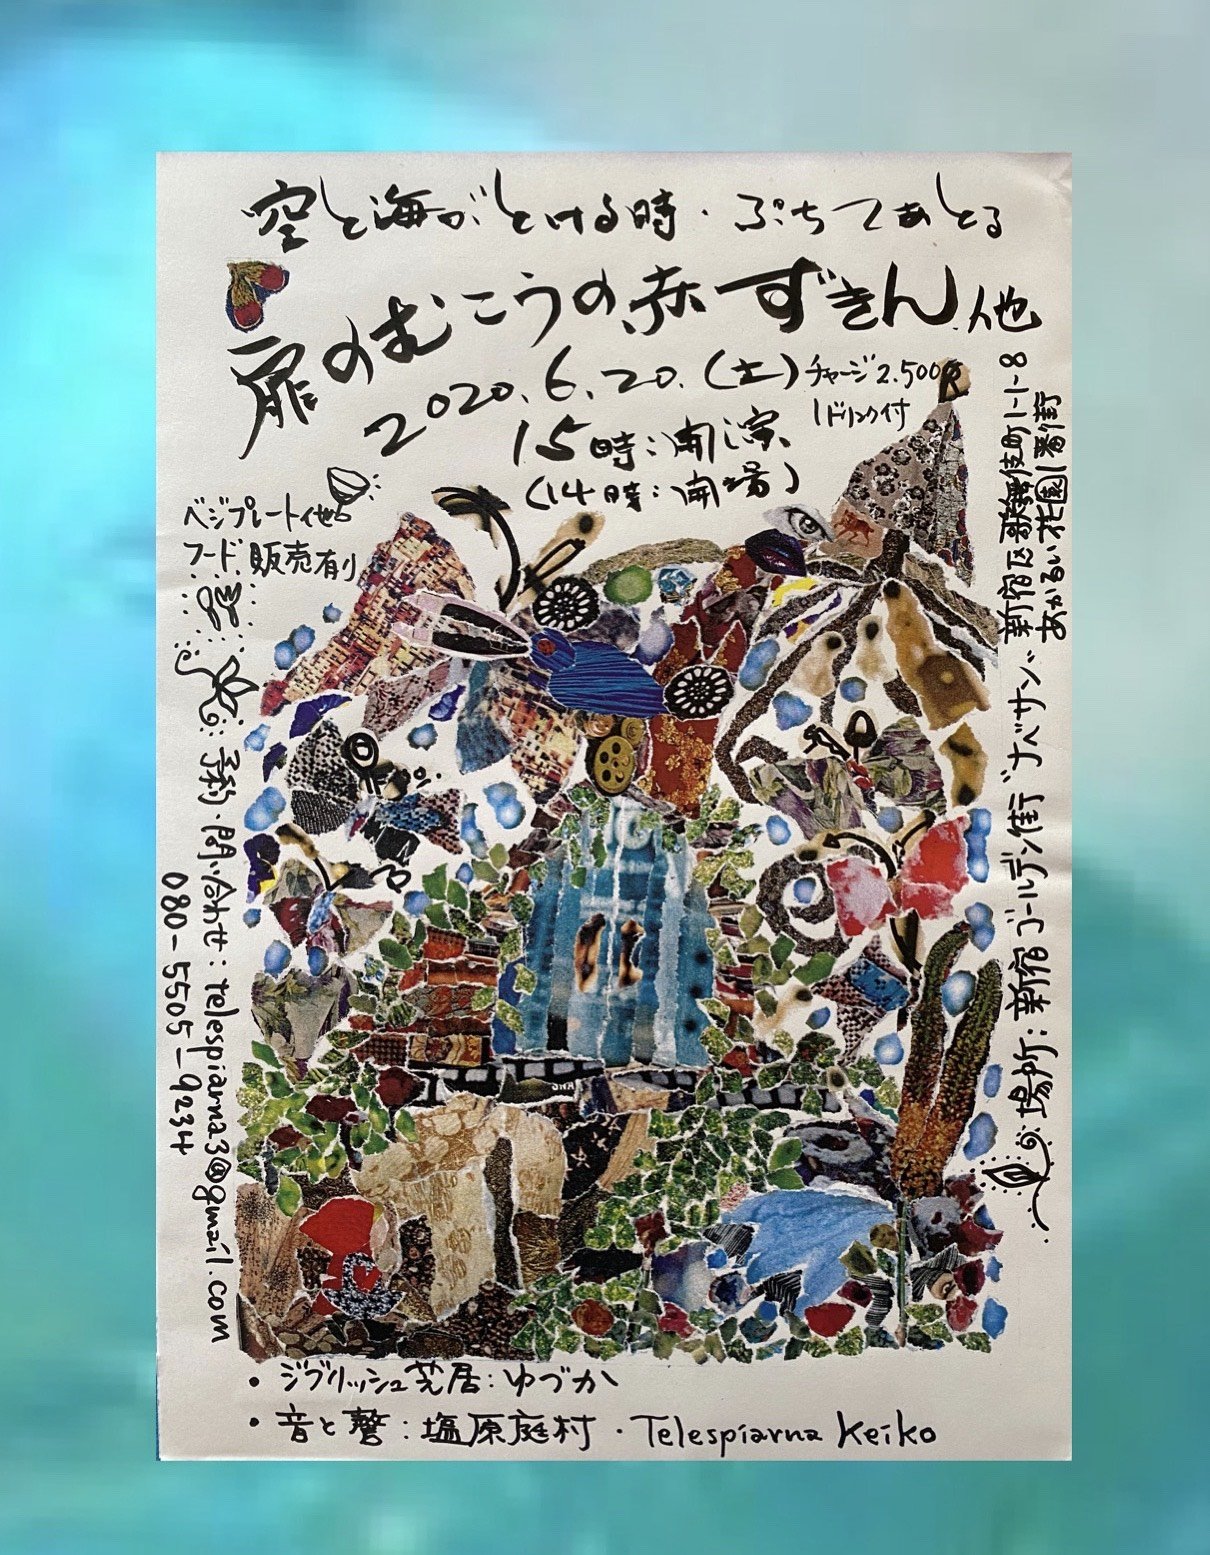 空と海がとける時・ぷちてあとる
扉のむこうの赤ずきん 他
2020.6.20.(土)
チャージ2.500円
1ドリンク付
15時:開演
(14時:開場)
ベジプレート他
フード販売有り
予約・問い合わせ:telespiarna3@gmail.com
080-5505-9234
場所:新宿ゴールデン街"ナベサン"
新宿区歌舞伎町1-1-8
あかるい花園1番街
・ジブリッシュ芝居:ゆづか
・音と聲:塩原庭村・Telespiarna Keiko